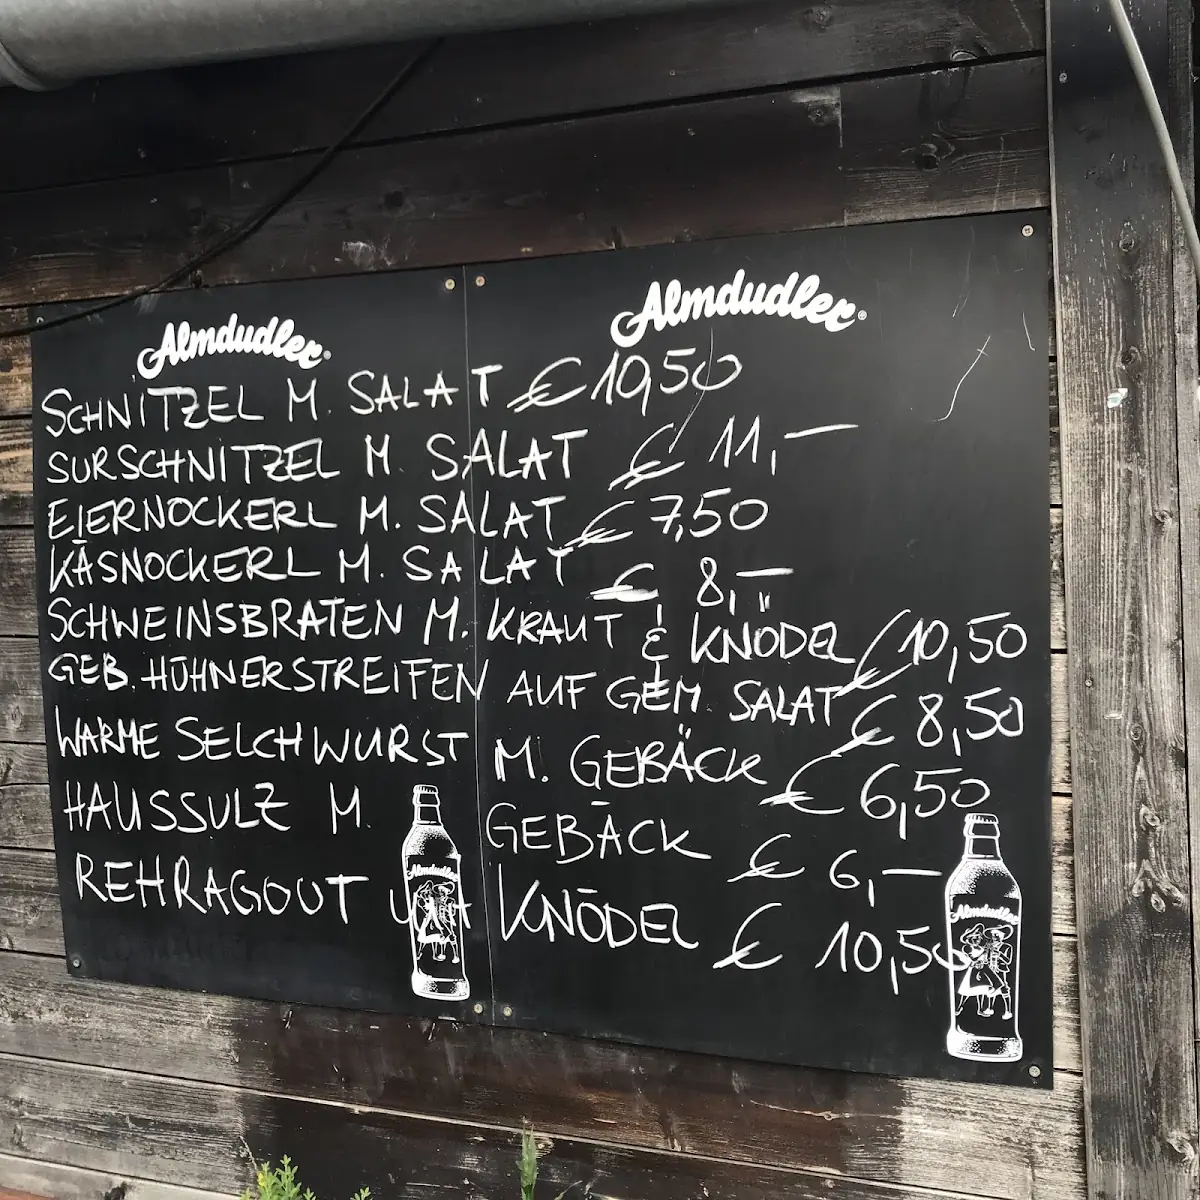 Almdudler
Almdudler
SCHNITZEL M. SALAT € 10,50
SURSCHNITZEL M. SALAT € 11,—
EIERNOCKERL M. SALAT € 7,50
KÄSNOCKERL M. SALAT € 8,—
SCHWEINSBRATEN M. KRAUT & KNÖDEL € 10,50
GEB. HÜHNERSTREIFEN AUF GEM. SALAT € 8,50
WARME SELCHWURST M. GEBÄCK € 6,50
HAUSSULZ M. GEBÄCK € 6,—
REHRAGOUT KNÖDEL € 10,50
Almdudler
Almdudler